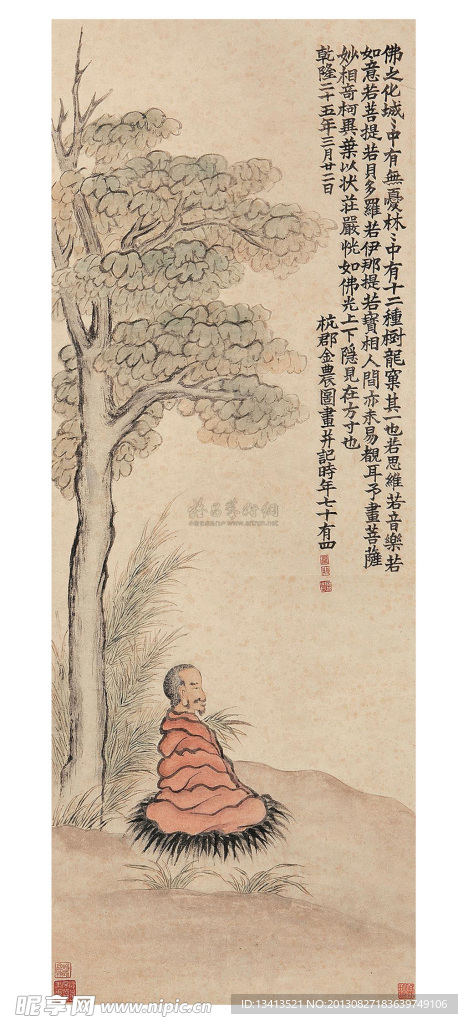 佛之化城〻中有無憂林〻中有十二種樹龍窠其一也若思維若音樂若
如意若菩提若貝多羅若伊那提若寶相人間亦未易覩耳予畫菩薩
妙相奇柯異葉以狀莊嚴恍如佛光上下隱見在方寸也
乾隆二十五年三月廿二日
杭郡金農圖畫并記時年七十有四
昵享网 www.nipic.cn
ID:13413521 NO:20130827183639749106